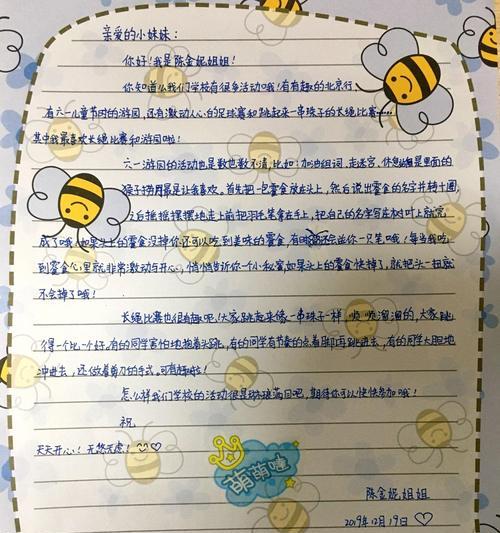 亲爱的小妹妹：
你好！我是陈金妮姐姐！
你知道么我们学校有很多活动哦！有有趣的北京行，
有六一儿童节时的游园，还有激动人心的足球赛和跳起来一串珠子的长绳比赛，
其中我最喜欢长绳比赛和游园啦！
六一游园的活动也是数也数不清，比如：加油组词，走迷宫，里面的
是让我喜欢。首先把一包零食放在头上，然后说出零食的名字并转十圈，
之后摇摇摆摆地走上前把羽毛笔拿在手上，把自己的名字写在对叮上就完
成了哦！如果头上的零食没掉你还可以吃到美味的零食 有时还会送你一只笔哦！每当我吃
到零食心里就非常激动与开心，悄悄告诉你个小秘密，如果头上的零食快掉了，就把头一扭就
不会掉了哦！
长绳比赛也很有趣呢！大家跳起来像一串珠子一样，顺顺溜溜的，大家跳
得一个比一个好，有的同学害怕地抱着头跳，有的同学有节奏的点着脚再跳进去，有的同学大胆地
冲进去，还做着剪刀的手式，可有趣啦！
怎么样我们学校的活动很是琳琅满目吧，期待你可以快快参加哦！
祝
天天开心！无愁无虑！
萌萌哒
陈金妮姐姐
2019年12月19日